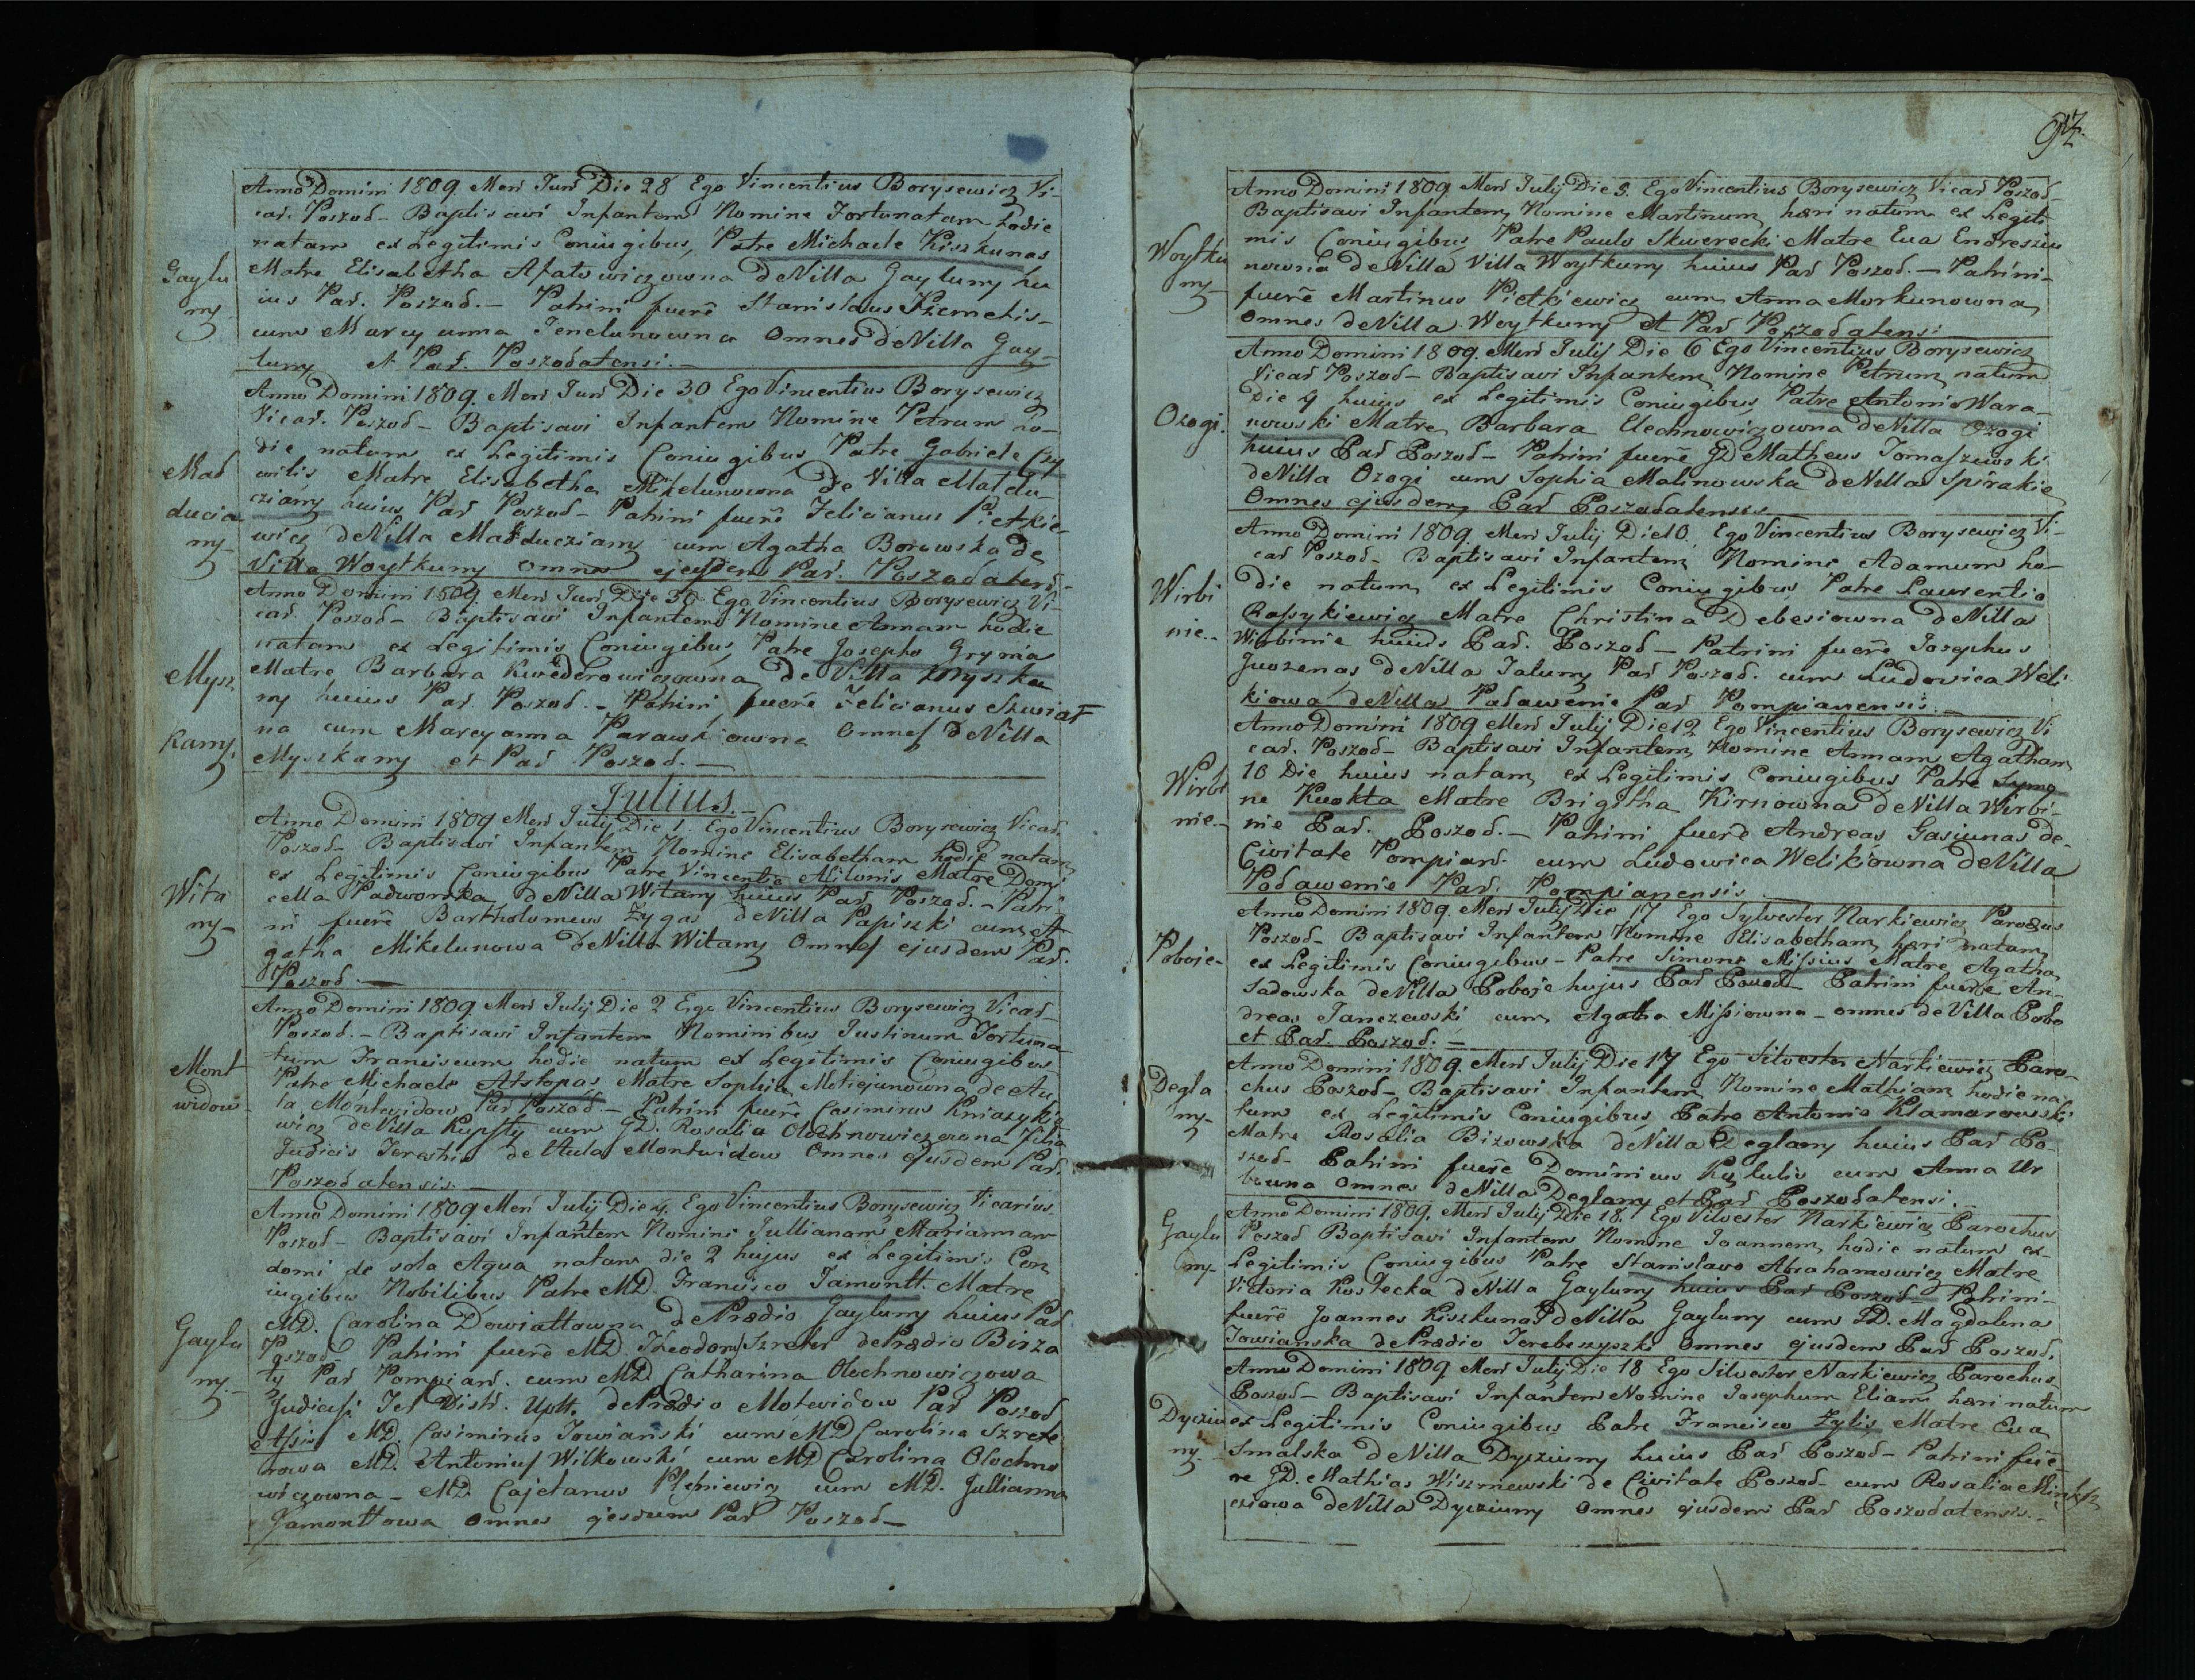 Gaylu
ny
Anno Domini 1809 Mens Juni Die 28 Ego Vincentius Borysewicz Vi-
car. Poszod- Baptisavi Infantem Nomine Fortunatam hodie
natam ex Legitimis Coniugibus, Patre Michaele Kiszkunas
Matre Elisabetha Afatowiczowna de Villa Gayluny hu
ius Par. Poszod.- Patrini fuere Stanislaus
cum Maryanna Omnes de Villa Gay-
luny et Par. Poszodatensi.-
Mal
ducia
ny-
Anno Domini 1809. Mens Juni Die 30 Ego Vincentius Borysewicz
Vicar. Poszod- Baptisavi Infantem Nomine Petrum ho-
die natum ex Legitimis Coniugibus Patre Gabriele
Matre Elisabetha Mikelunowna de Villa Maldu-
ciany huius Par Poszod- Patrini fuere Felicianus Pietkie-
wicz de Villa Malducziany cum Agatha Borowska de
Villa Woytkuny omnes ejusdem Par. Poszodatens-
Mysz
kany.
Anno Domini 1809 Mens Juni Die 30 Ego Vincentius Borysewicz Vi-
car. Poszod- Baptisavi Infantem Nomine Annam hodie
natam ex Legitimis Coniugibus, Patre Josepho Grynia
Matre Barbara Kwederowiczowna de Villa Myszka
ny huius Par. Poszod.- Patrini fuere Felicianus
na cum Maryanna Omnes de Villa
Myszkany et Par Poszod.-
Julius.-
Wita
ny-
Anno Domini 1809 Mens Julij Die 1. Ego Vincentius Borysewicz Vicar.
Poszod- Baptisavi Infantem Nomine Elisabetham hodie natam
ex Legitimis Coniugibus Patre Vincentio Milonis Matre Domi
cella Padworska de Villa Witany huius Par Poszod.- Patri-
ni fuere Bartholomeus Zygas de Villa Papiszki cum A
gatha Mikelunowa de Villa Witany Omnes ejusdem Par.
Poszod.-
Mont
widow
Anno Domini 1809 Mens Julij Die 2 Ego Vincentius Borysewicz Vicar
Poszod.- Baptisavi Infantem Nominibus Justinum Fortuna
tum Franciscum hodie natum ex Legitimis Coniugibus
Patre Michaele Matre Sophia Motiejunowna de Au
la Montwidow Par Poszod- Patrini fuere Casimirus
wicz de Villa Kupsty cum GD. Rosalia Olechnowiczowna Filia
Judicis de Aula Montwidow Omnes ejusdem Par.
Poszodatensis.-
Gaylu
ny.-
Anno Domini 1809 Mens Julij Die 4. Ego Vincentius Borysewicz Vicarius
Poszod- Baptisavi Infantem Nomine Jullianam Mariannam
domi de sola Aqua natam die 2 hujus ex Legitimis Con
iugibus Nobilibus Patre MD. Francisco Jamontt. Matre
MD. Carolina Dowiattowna de Prædio Gayluny huius Par
Poszod- Patrini fuere MD. Theodor Szreter de Prædio Birza
ty Par Pompian. cum MD Catharina Olechnowiczowa
de Prædio Motwidow Par Poszod
MD. Casimirus Jowianski cum MD Carolina Szrete
rowa MD. Antonius Wilkowski cum MD Carolina Olechno
wiczowna- MD Cajetanus cum MD. Jullianna
Jamonttowa omnes Par Poszod-
92.
Woytku
ny-
Anno Domini 1809. Mens Julij Die 5. Ego Vincentius Borysewicz Vicar Poszod-
Baptisavi Infantem Nomine Martinum hæri natum ex Legiti
mis Coniugibus, Patre Paulo Skwerecki Matre Eva Endresziu
nowna de Villa Villa Woytkuny huius Par Poszod.- Patrini-
fuere Martinus Pietkiewicz cum Anna Morkunowna
Omnes de Villa Woytkuny et Par Poszodatensi
Ozogi.
Anno Domini 1809. Mens Julij Die 6 Ego Vincentius Borysewicz
Vicar Poszod- Baptisavi Infantem Nomine Petrum natum
Die 4 huius ex Legitimis Coniugibus Patre Antonio Wara-
nowski Matre Barbara Uechnowiczowna de Villa Ozogi
huius Par Poszod- Patrini fuere GD Matheus Tomaszewski
de Villa Ozogi cum Sophia Malinowska de Villa Spirakie
Omnes ejusdem Par Poszodatensis
Wirbi
nie-
Anno Domini 1809. Mens Julij Die 10. Ego Vincentius Borysewicz Vi-
car Poszod- Baptisavi Infantem Nomine Adamum ho-
die natum ex Legitimis Coniugibus, Patre Laurentio
Matre Christina Debesiowna de Villa
Wirbinie huius Par. Poszod- Patrini fuere Josephus
Juozenas de Villa Jaluny Par Poszod. cum Ludovica Weli
kiowa de Villa Padawenie Par Pompianensis.-
Wirbi
nie-
Anno Domini 1809 Mens Julij Die 12 Ego Vincentius Borysewicz Vi
car. Poszod- Baptisavi Infantem Nomine Annam Agatham
10 Die huius natam ex Legitimis Coniugibus Patre Symo
ne Kuokta Matre Brigitha Kirsiowna de Villa Wirbi-
nie Par. Poszod.- Patrini fuere Andreas Gasiunas de
Civitate Pompian. cum Ludowica Welikiowna de Villa
Podawenie Par. Pompianensis
Poboje-
Anno Domini 1809. Mens Julij Die 17 Ego Sylvester Narkiewicz Parochus
Poszod- Baptisavi Infantem Nomine Elisabetham hæri natam
ex Legitimis Coniugibus- Patre Simone Missius Matre Agatha
Sadowska de Villa Poboje hujus Par Poszod- Patrini fuere An-
dreas Janczewski cum Agatha Missiowna- omnes de Villa Pobo
et Par. Poszod.-
Degla
ny-
Anno Domini 1809. Mens Julij Die 17 Ego Silvester Narkiewicz Paro-
chus Poszod- Baptisavi Infantem Nomine Mathiam hodie na
tum ex Legitimis Coniugibus, Patre Antonio Klamarowski
Matre Rosalia Bizowska de Villa Deglany huius Par Po-
szod- Patrini fuere Dominicus cum Anna Ur
bowna omnes de Villa Deglany et Par Poszodatensi.
Gaylu
ny-
Anno Domini 1809. Mens Julij Die 18. Ego Silvester Narkiewicz Parochus
Poszod Baptisavi Infantem Nomine Joannem hodie natum ex-
Legitimis Coniugibus Patre Stanislavo Abrahamowicz Matre
Victoria Kostecka de Villa Gayluny huius Par Poszod- Patrini-
fuere Joannes Kiszkunas de Villa Gayluny cum GD. Magdalena
Jowianska de Prædio Jerebeszyszki Omnes ejusdem Par Poszod,
Dycziu
ny-
Anno Domini 1809. Mens Julij Die 18 Ego Silvester Narkiewicz Parochus
Poszod- Baptisavi Infantem Nomine Josephum Eliam hæri natum
ex Legitimis Coniugibus Patre Francisco Zylis Matre Eva
Smalska de Villa Dycziuny huius Par Poszod- Patrini fue-
re GD. Mathias Wiszniewski de Civitate Poszod- cum Rosalia
de Villa Dycziuny omnes ejusdem Par Poszodatensis.-